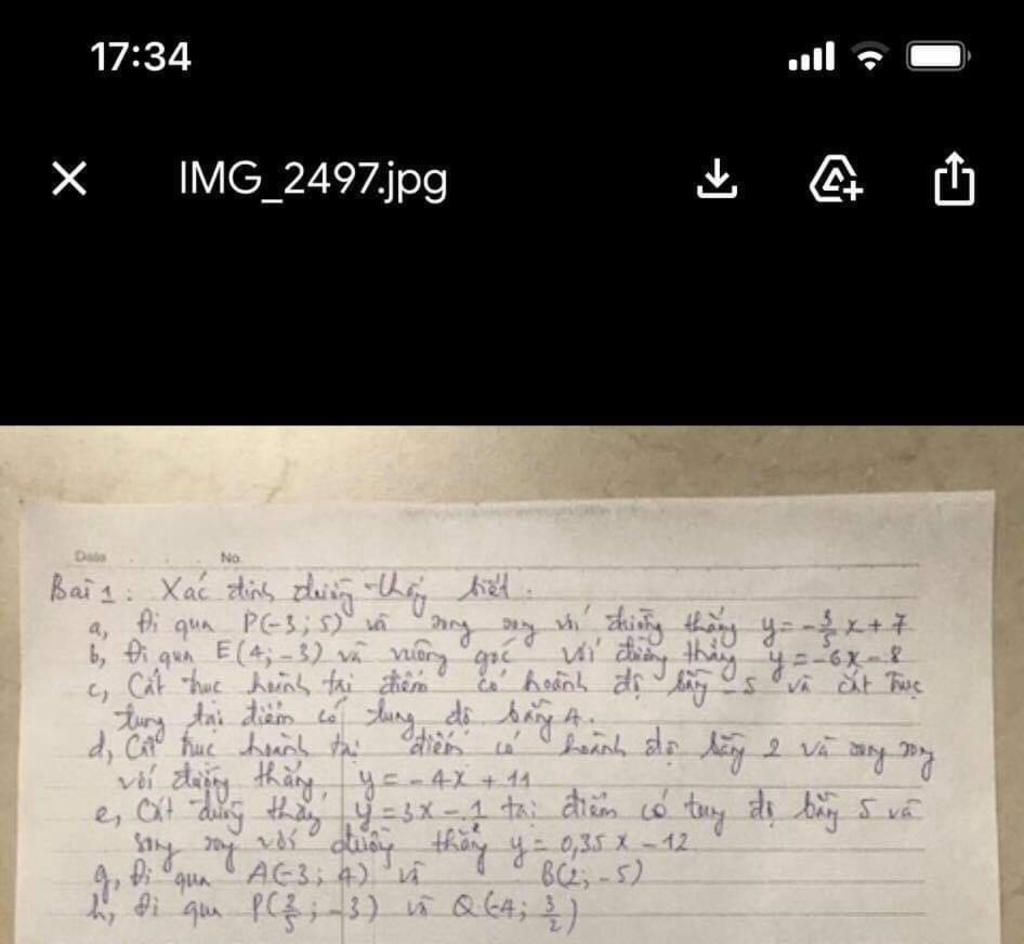 17:34
IMG_2497.jpg
Date No.
Bài 1: Xác định đường thẳng biết:
a, Đi qua P(-3; 5) và song song với đường thẳng y = -3/5 x + 7
b, Đi qua E(4; -3) và vuông góc với đường thẳng y = -6x - 8
c, Cắt trục hoành tại điểm có hoành độ bằng -5 và cắt trục
tung tại điểm có tung độ bằng 4.
d, Cắt trục hoành tại điểm có hoành độ bằng 2 và song song
với đường thẳng y = -4x + 11
e, Cắt đường thẳng y = 3x - 1 tại điểm có tung độ bằng 5 và
song song với đường thẳng y = 0,35x - 12
g, Đi qua A(-3; 4) và B(2; -5)
h, Đi qua P(2/5; -3) và Q(-4; 3/2)